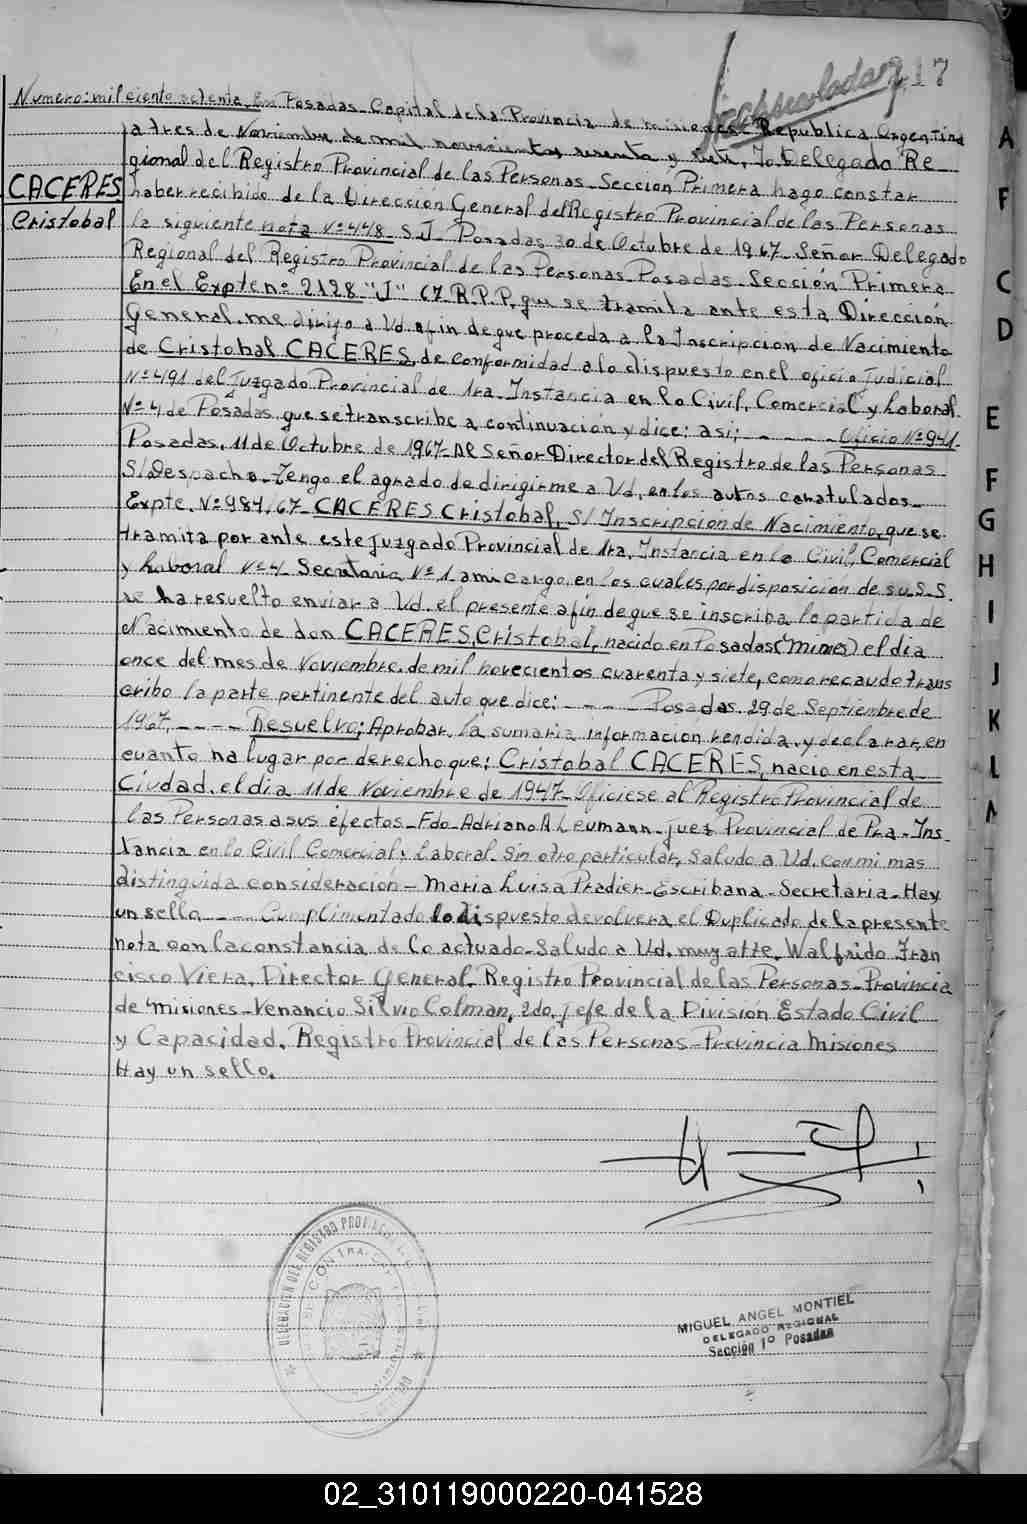 17
Numero: mil ciento setenta. En Posadas_Capital de la Provincia de misiones_Republica Argentina
a tres de Noviembre de mil novecientos sesenta y siete, Yo Delegado Re_
gional del Registro Provincial de las Personas_Sección Primera hago constar
CACERES
haber recibido de la Dirección General del Registro Provincial de las Personas
Cristobal
la siguiente nota Nº 448_SJ_Posadas 30 de Octubre de 1967_Señor Delegado
Regional del Registro Provincial de las Personas Posadas_Sección Primera
En el Expte nº 2128 "J" 67 R.P.P. que se tramita ante esta Dirección
General, me dirijo a Vd. a fin de que proceda a la Inscripcion de Nacimiento
de Cristobal CACERES, de conformidad a lo dispuesto en el oficio Judicial
Nº 491 del Juzgado Provincial de 1ra. Instancia en lo Civil, Comercial y Laboral.
Nº 4 de Posadas que se transcribe a continuación y dice: asi; _ _ _ _ Oficio Nº 941.
Posadas, 11 de Octubre de 1967_Al Señor Director del Registro de las Personas
S/Despacho_Tengo el agrado de dirigirme a Vd, en los autos caratulados_
Expte. Nº 984/67_CACERES Cristobal, S/ Inscripcion de Nacimiento, que se
tramita por ante este Juzgado Provincial de 1ra, Instancia en lo Civil, Comercial
y Laboral Nº 4 Secretaria Nº 1 a mi cargo, en los cuales por disposición de su S.S.
se ha resuelto enviar a Vd. el presente a fin de que se inscriba la partida de
Nacimiento de don CACERES, Cristobal, nacido en Posadas (Mnes) el dia
once del mes de Noviembre, de mil novecientos cuarenta y siete, como recaudo trans
cribo la parte pertinente del auto que dice: _ _ _ _ Posadas. 29 de Septiembre de
1967, _ _ _ _ Resuelvo; Aprobar, la sumaria informacion rendida, y declarar, en
cuanto ha lugar por derecho que; Cristobal CACERES, nacio en esta_
Ciudad, el dia 11 de Noviembre de 1947_Oficiese al Registro Provincial de
las Personas a sus efectos_Fdo_Adriano A Leumann_Juez Provincial de Pra_Ins_
tancia en lo Civil Comercial y Laboral. Sin otro particular, Saludo a Vd. con mi mas
distinguida consideración_Maria Luisa Pradier_Escribana_Secretaria_Hay
un sello _ _ _ Cumplimentado lo dispuesto devolvera el Duplicado de la presente
nota con la constancia de lo actuado_Saludo a Vd. muy atte. Walfrido Fran
cisco Viera, Director General, Registro Provincial de las Personas_Provincia
de Misiones_Venancio Silvio Colman, 2do, Jefe de la División Estado Civil
y Capacidad, Registro Provincial de las Personas_Provincia Misiones
Hay un sello.
DELEGACION DEL REGISTRO PROVINCIAL
MIGUEL ANGEL MONTIEL
DELEGADO REGIONAL
Sección 1º Posadas
A
F
C
D
E
F
G
H
I
J
K
L
02_310119000220-041528